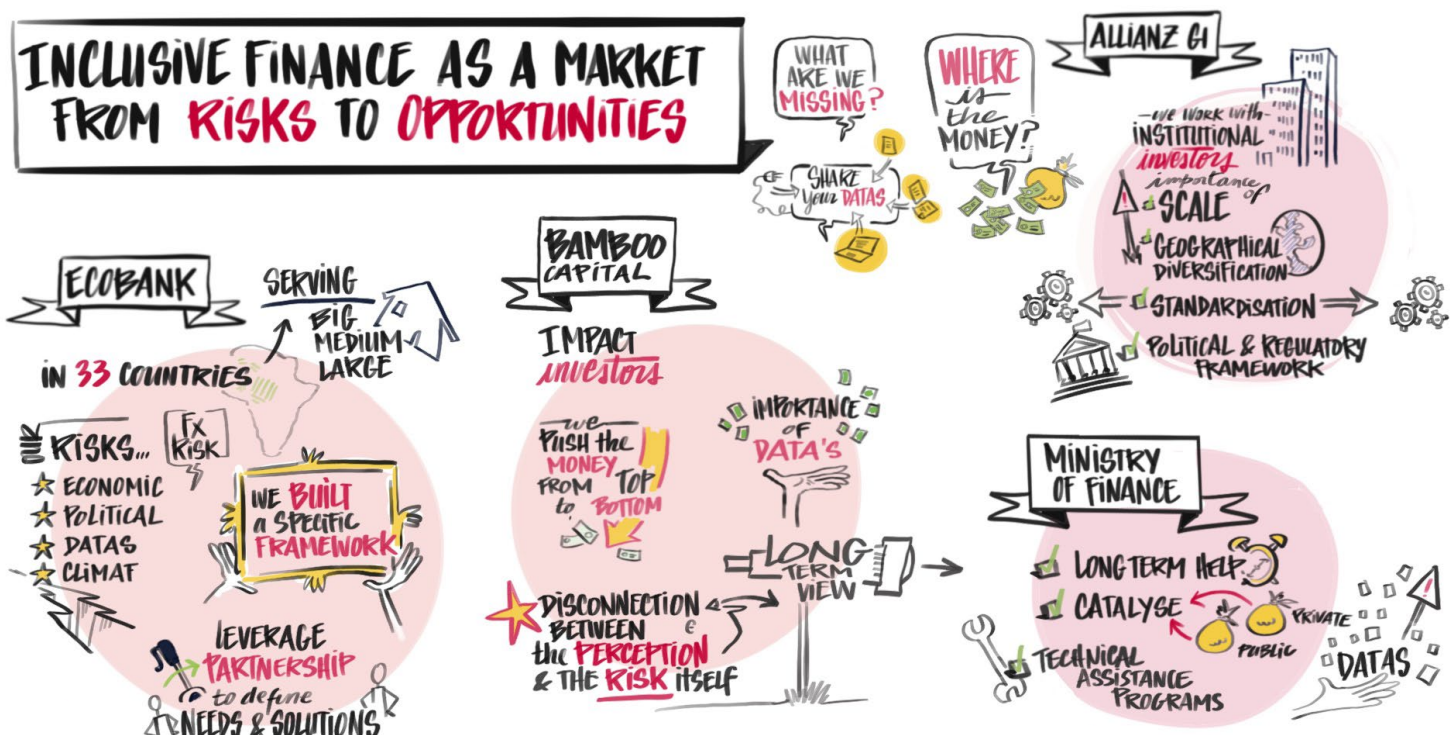 INCLUSIVE FINANCE AS A MARKET
FROM RISKS TO OPPORTUNITIES
WHAT
ARE WE
MISSING?
SHARE
Your DATAS
WHERE
is
the
MONEY?
ALLIANZ GI
-WE WORK With-
INSTITUTIONAL
investors
importance
of
SCALE
GEOGRAPHICAL
DIVERSIFICATION
STANDARDISATION
POLITICAL & REGULATORY
FRAMEWORK
ECOBANK
SERVING
BIG
MEDIUM
LARGE
IN 33 COUNTRIES
RISKS...
FX
RISK
ECONOMIC
POLITICAL
DATAS
CLIMAT
WE BUILT
a SPECIFIC
FRAMEWORK
LEVERAGE
PARTNERSHIP
to define
NEEDS & SOLUTIONS
BAMBOO
CAPITAL
IMPACT
investors
we
PUSH the
MONEY
FROM TOP
to BOTTOM
IMPORTANCE
OF
DATA'S
LONG
TERM
VIEW
DISCONNECTION
BETWEEN
the PERCEPTION
& THE RISK itSELF
MINISTRY
OF FINANCE
LONG TERM HELP
CATALYSE
PRIVATE
PUBLIC
TECHNICAL
ASSISTANCE
PROGRAMS
DATAS